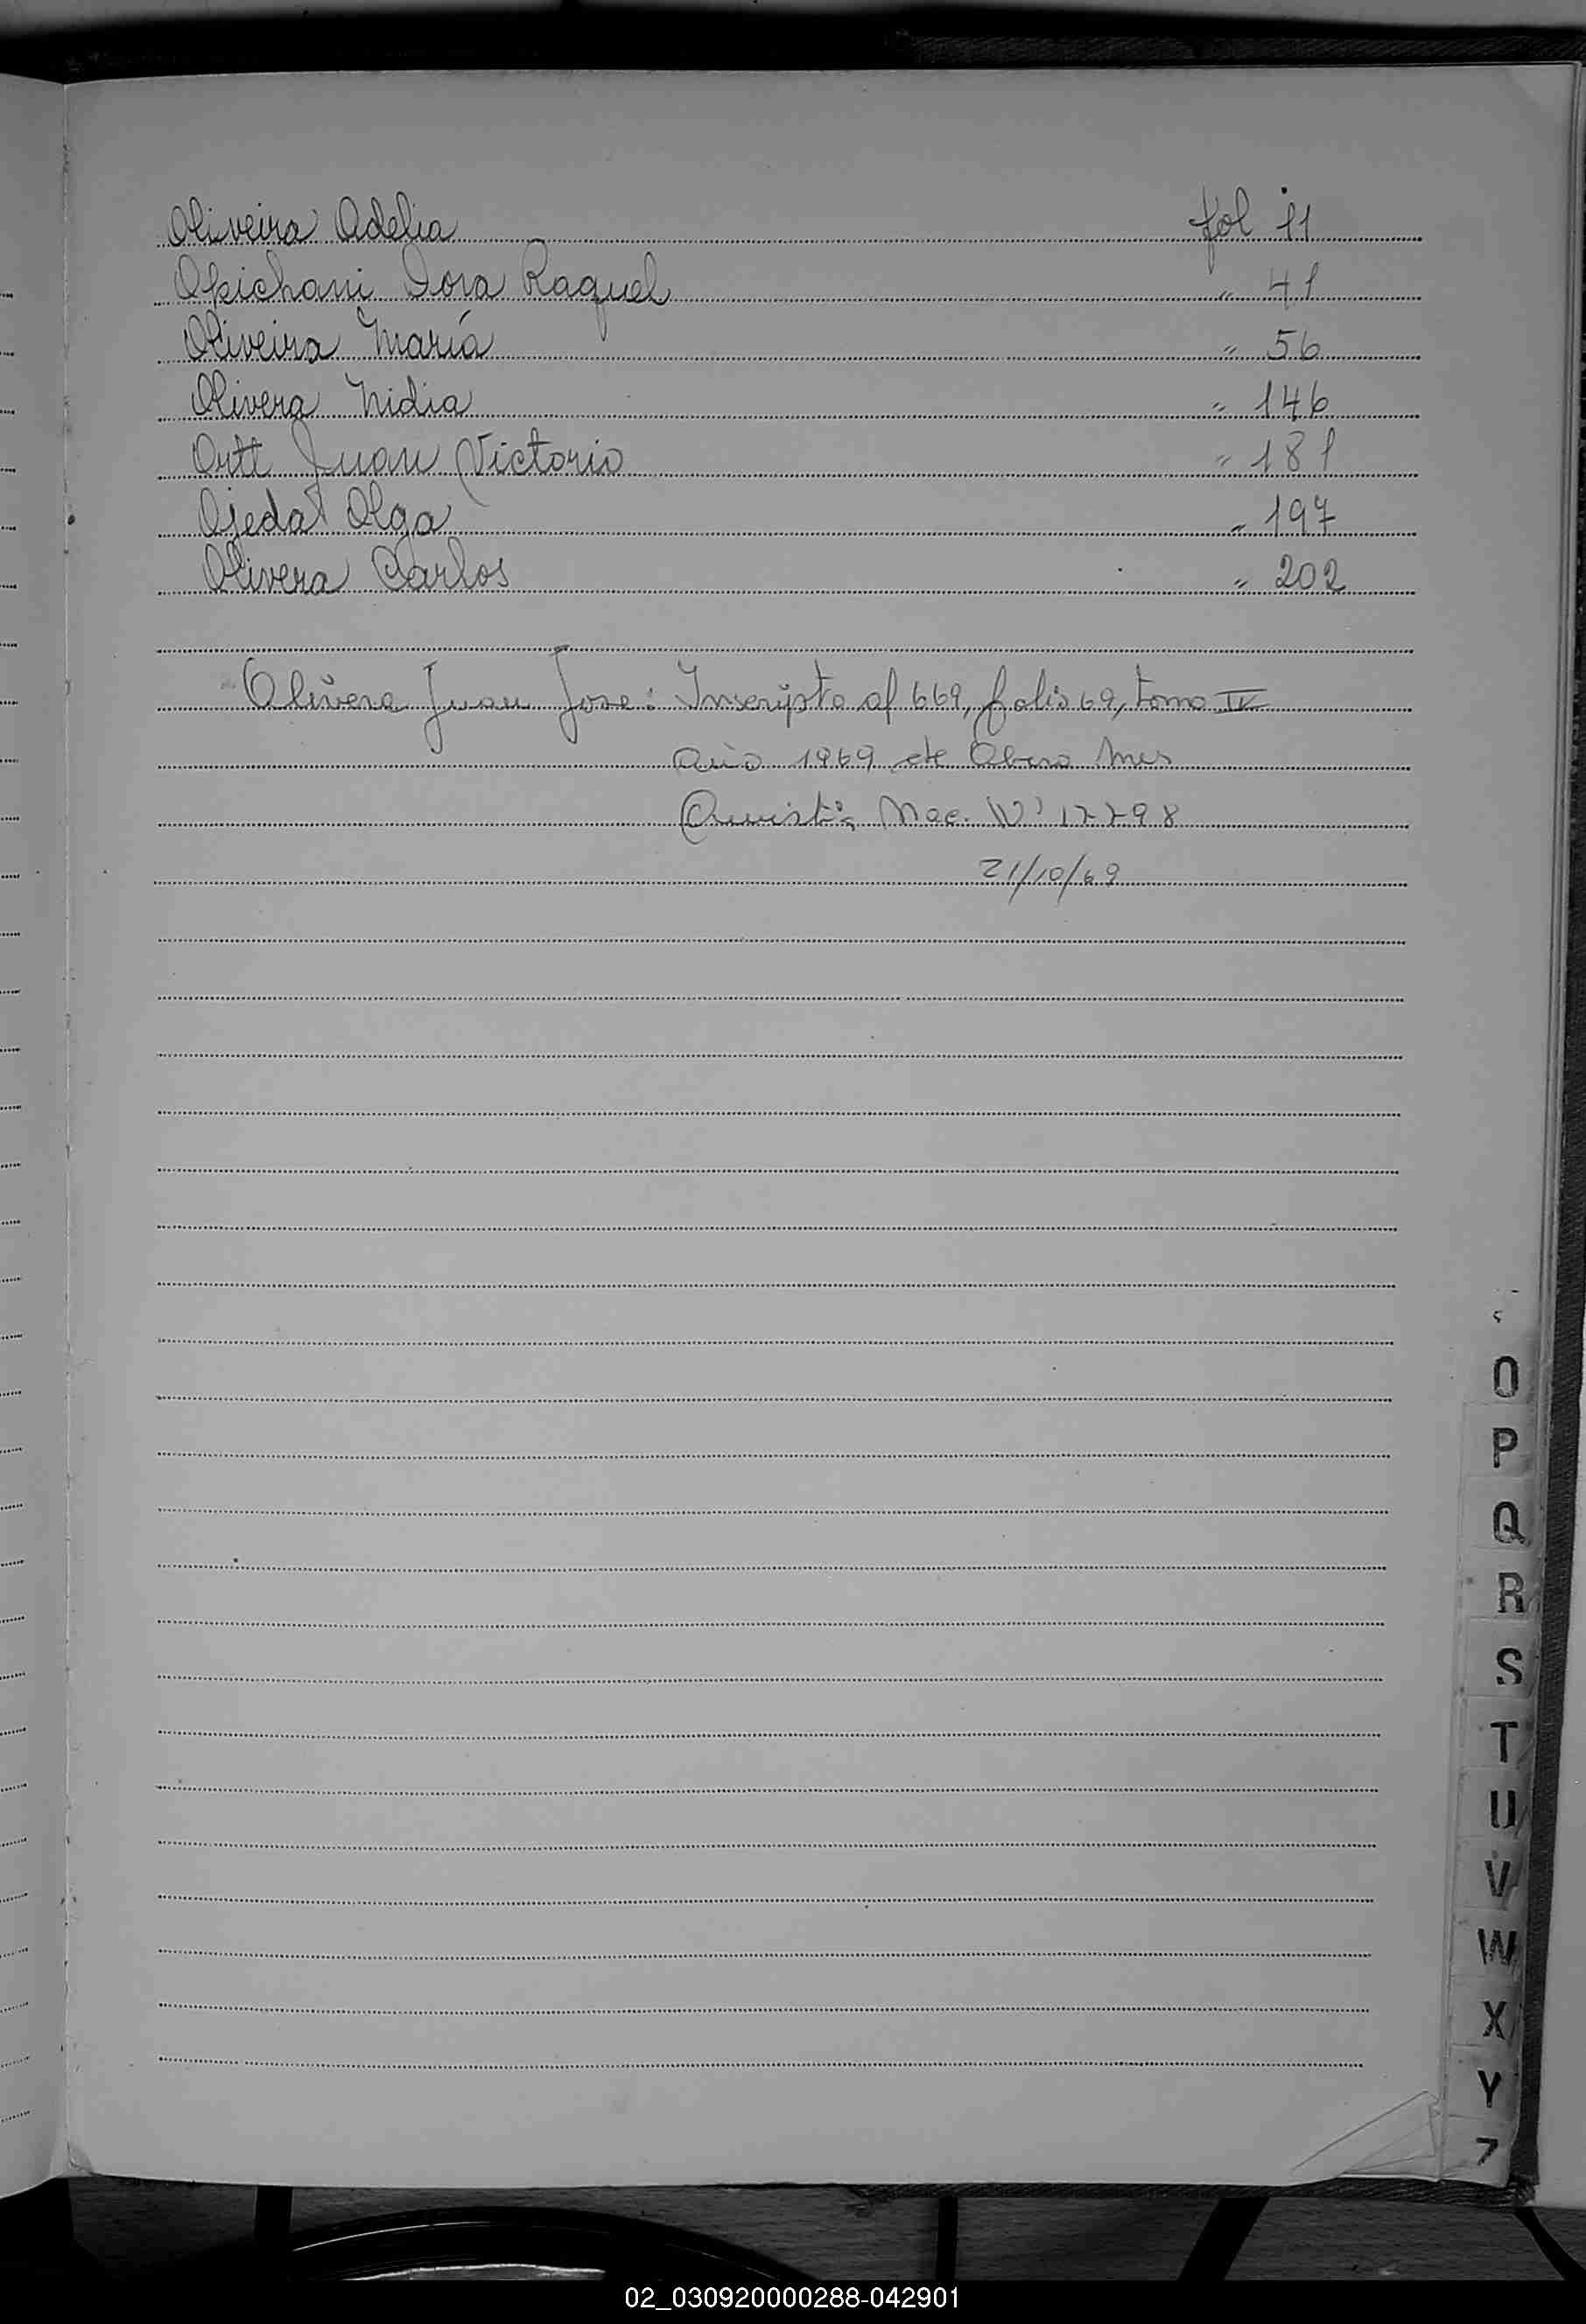 Oliveira Adelia fol 11
Opichani Dora Raquel " 41
Oliveira María " 56
Olivera Nidia " 146
Ortt Juan Victorio " 181
Ojeda Olga " 197
Olivera Carlos " 202
Olivera Juan Jose: Inscripto al 669, folio 69, tomo IV
año 1969 de Obera Mnes
Amnistia Nac. Nº 17798
21/10/69
O
P
Q
R
S
T
U
V
W
X
Y
Z
02_030920000288-042901